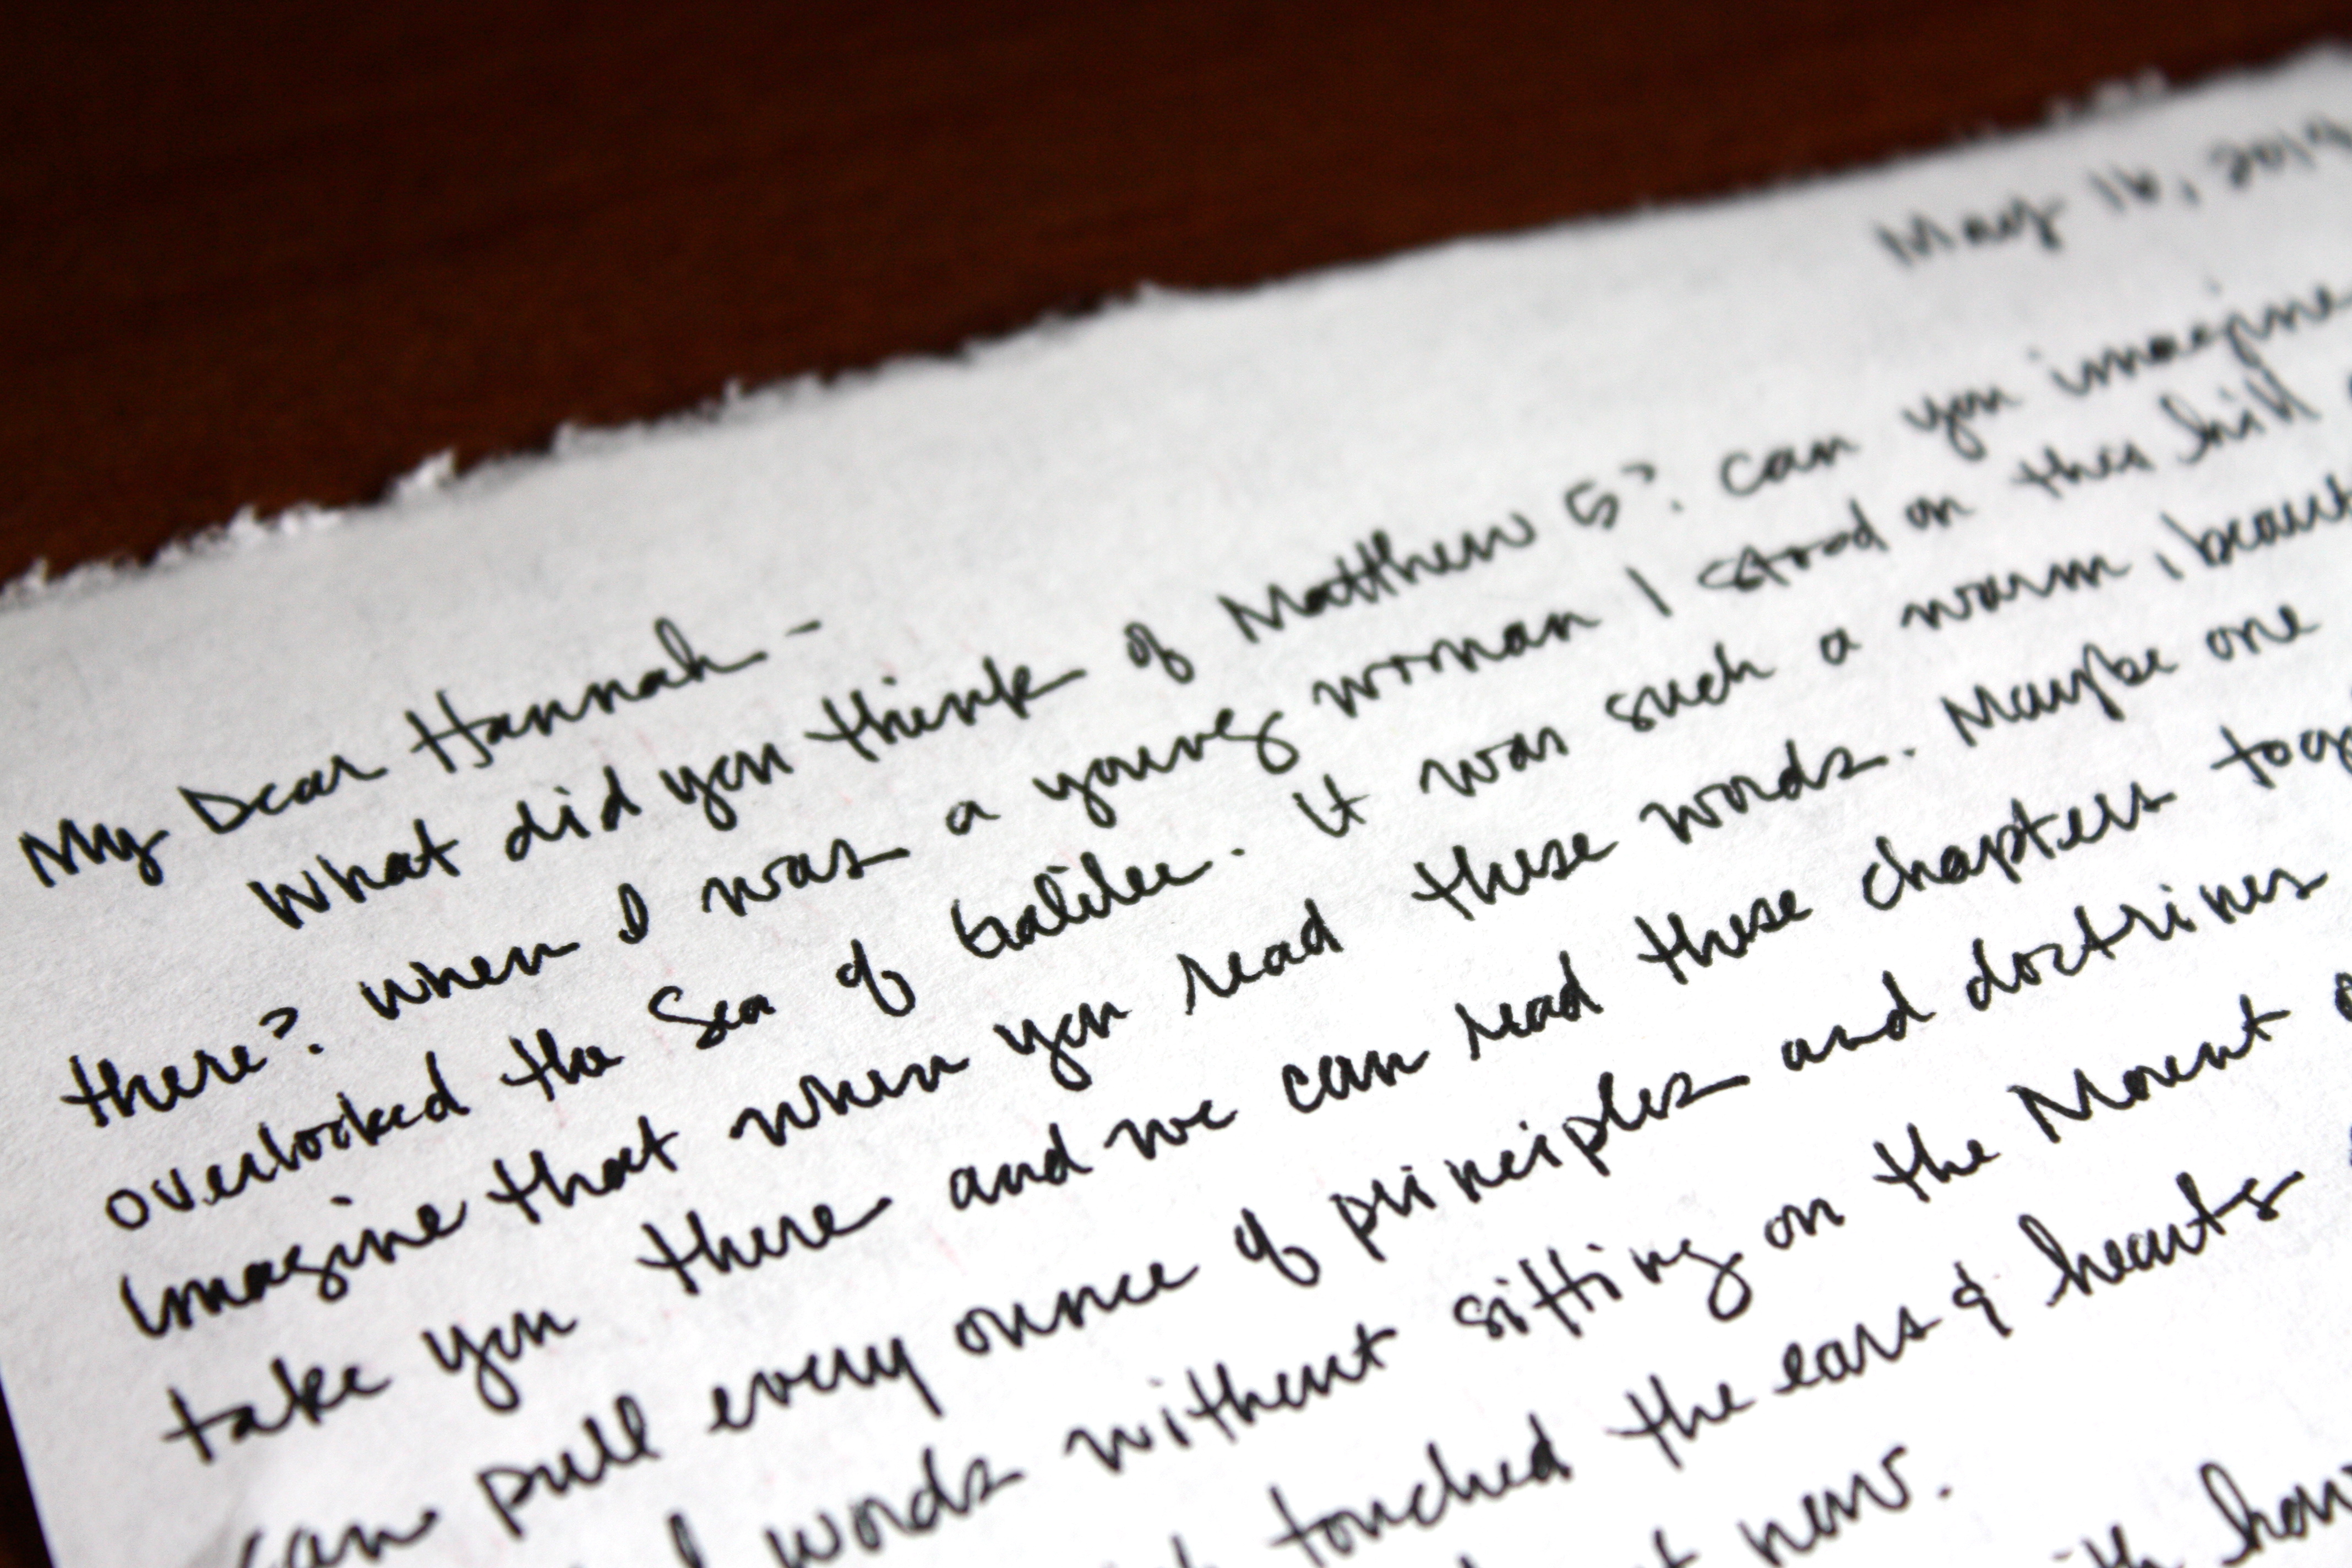 May 16, 2014
My Dear Hannah -
What did you think of Matthew 5? Can you imagine
there? When I was a young woman I stood on this hill
overlooked the Sea of Galilee. It was such a warm, beaut
imagine that when you read these words. Maybe one
take you there and we can read these chapters tog
can pull every ounce of principles and doctrines
words without sitting on the Mount
touched the ears & hearts
now.